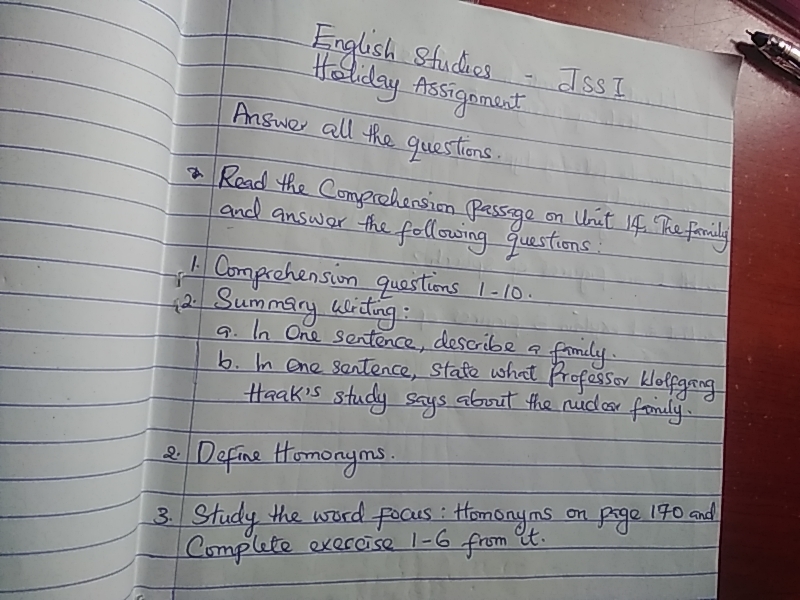 English Studies - JSS I
Holiday Assignment
Answer all the questions.
Read the Comprehension Passage on Unit 14, The family
and answer the following questions:
1. Comprehension questions 1-10.
2. Summary writing:
a. In One sentence, describe a family.
b. In one sentence, state what Professor Wolfgang
Haak's study says about the nuclear family.
2. Define Homonyms.
3. Study the word focus: Homonyms on page 170 and
Complete exercise 1-6 from it.